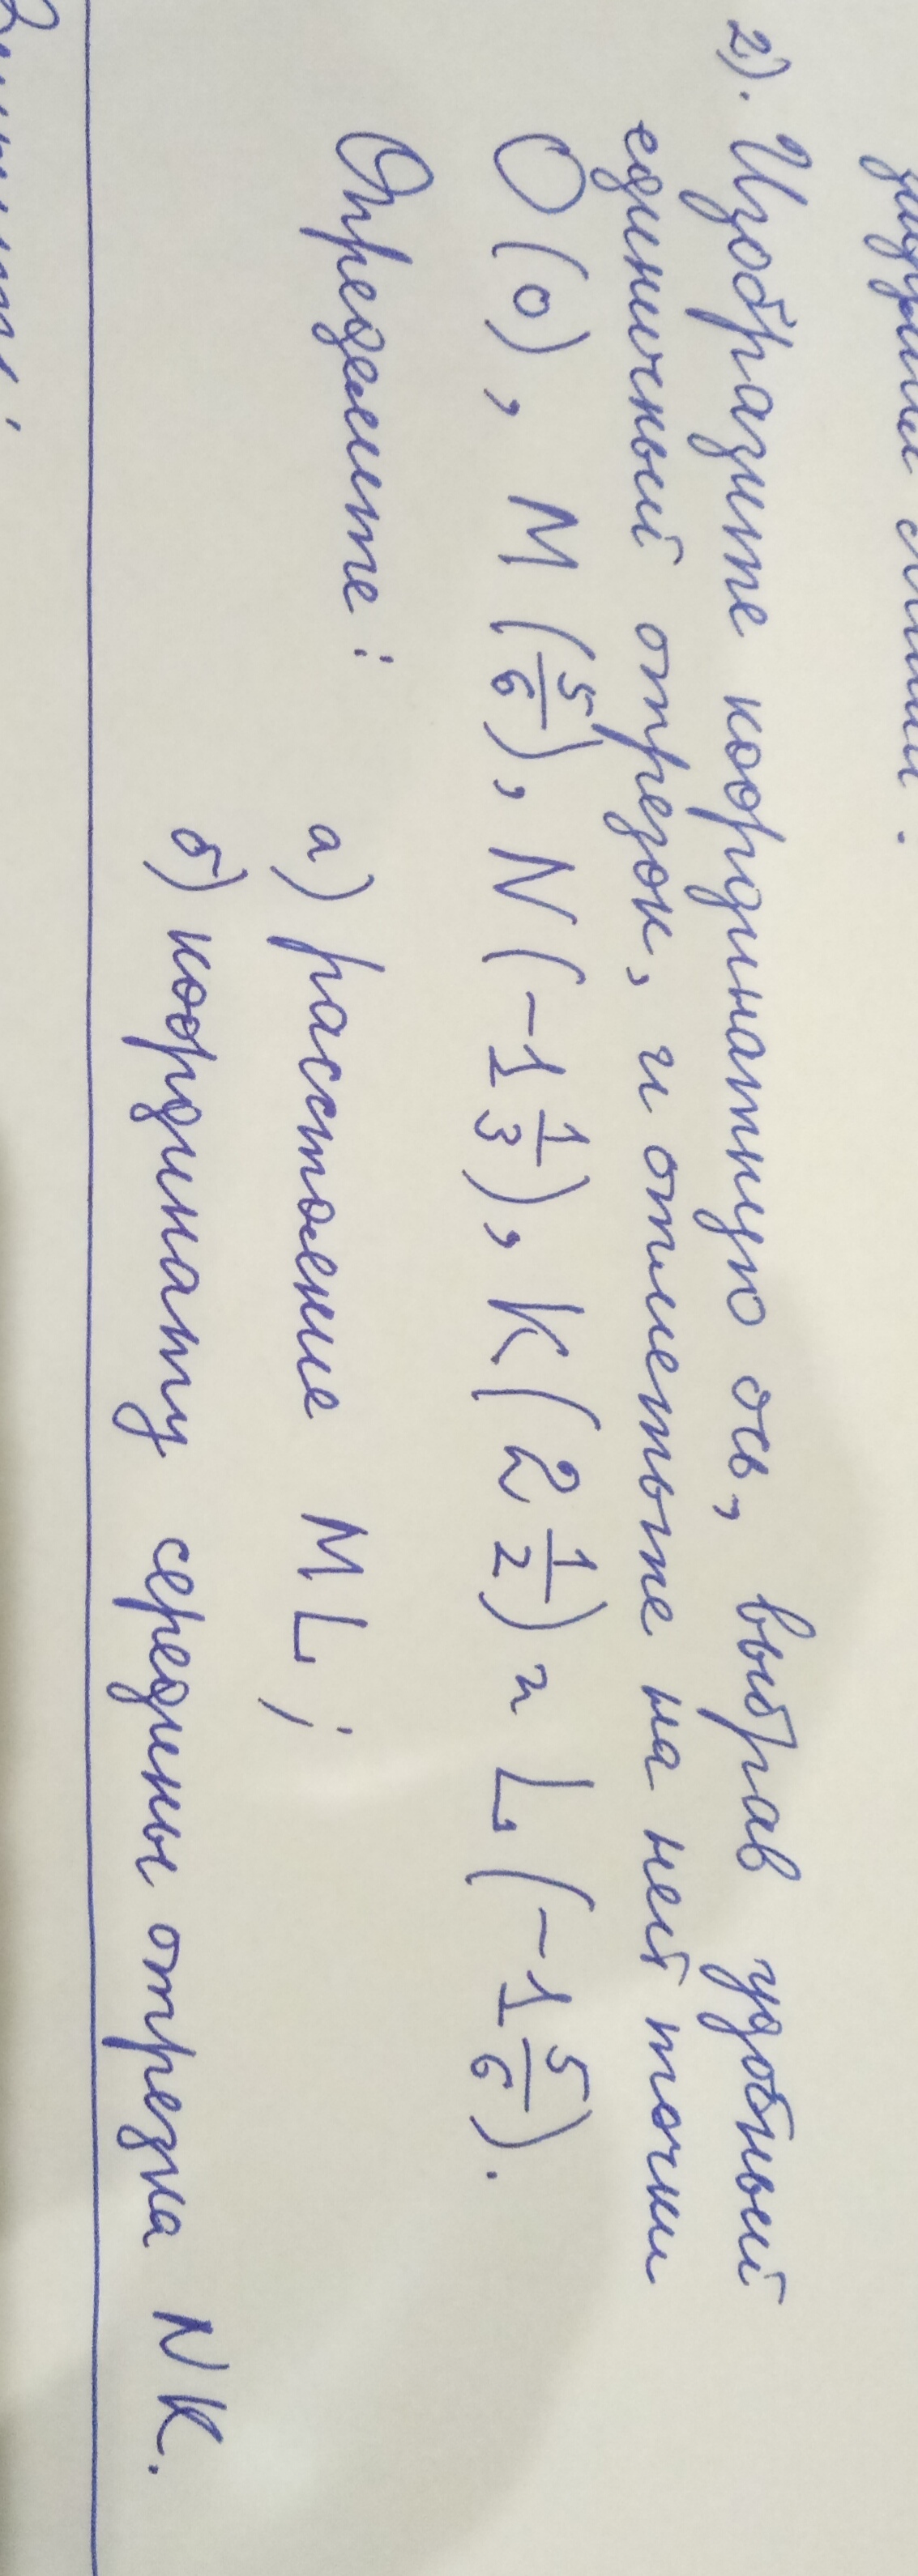 2). Изобразите координатную ось, выбрав удобный
единичный отрезок, и отметьте на ней точки
O(0), M(5/6), N(-1 1/3), K(2 1/2) и L(-1 5/6).
Определите: а) расстояние ML;
б) координату середины отрезка NK.